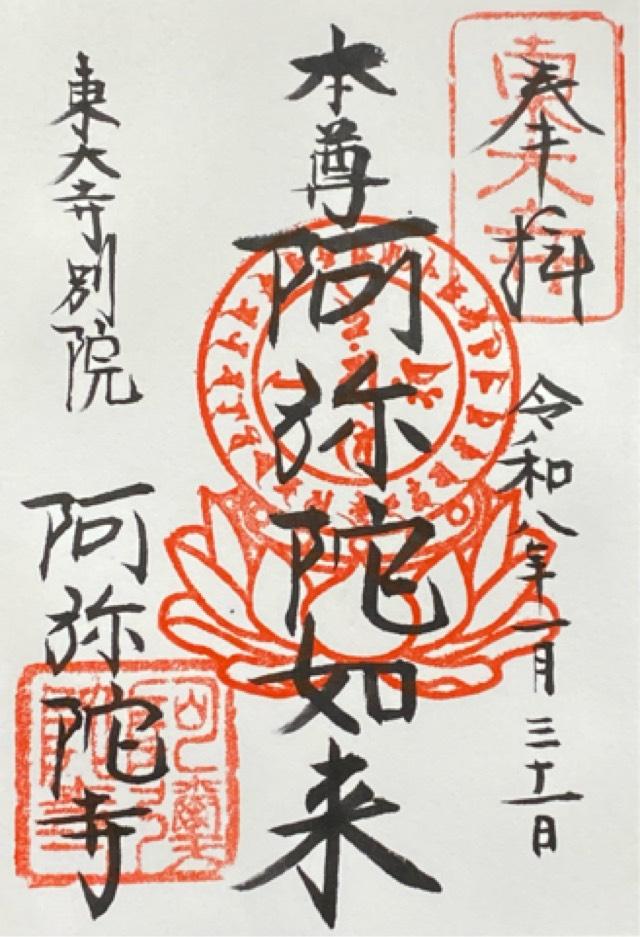 奉拝
令和八年一月三十一日
本尊
阿弥陀如来
東大寺別院
阿弥陀寺
東大寺